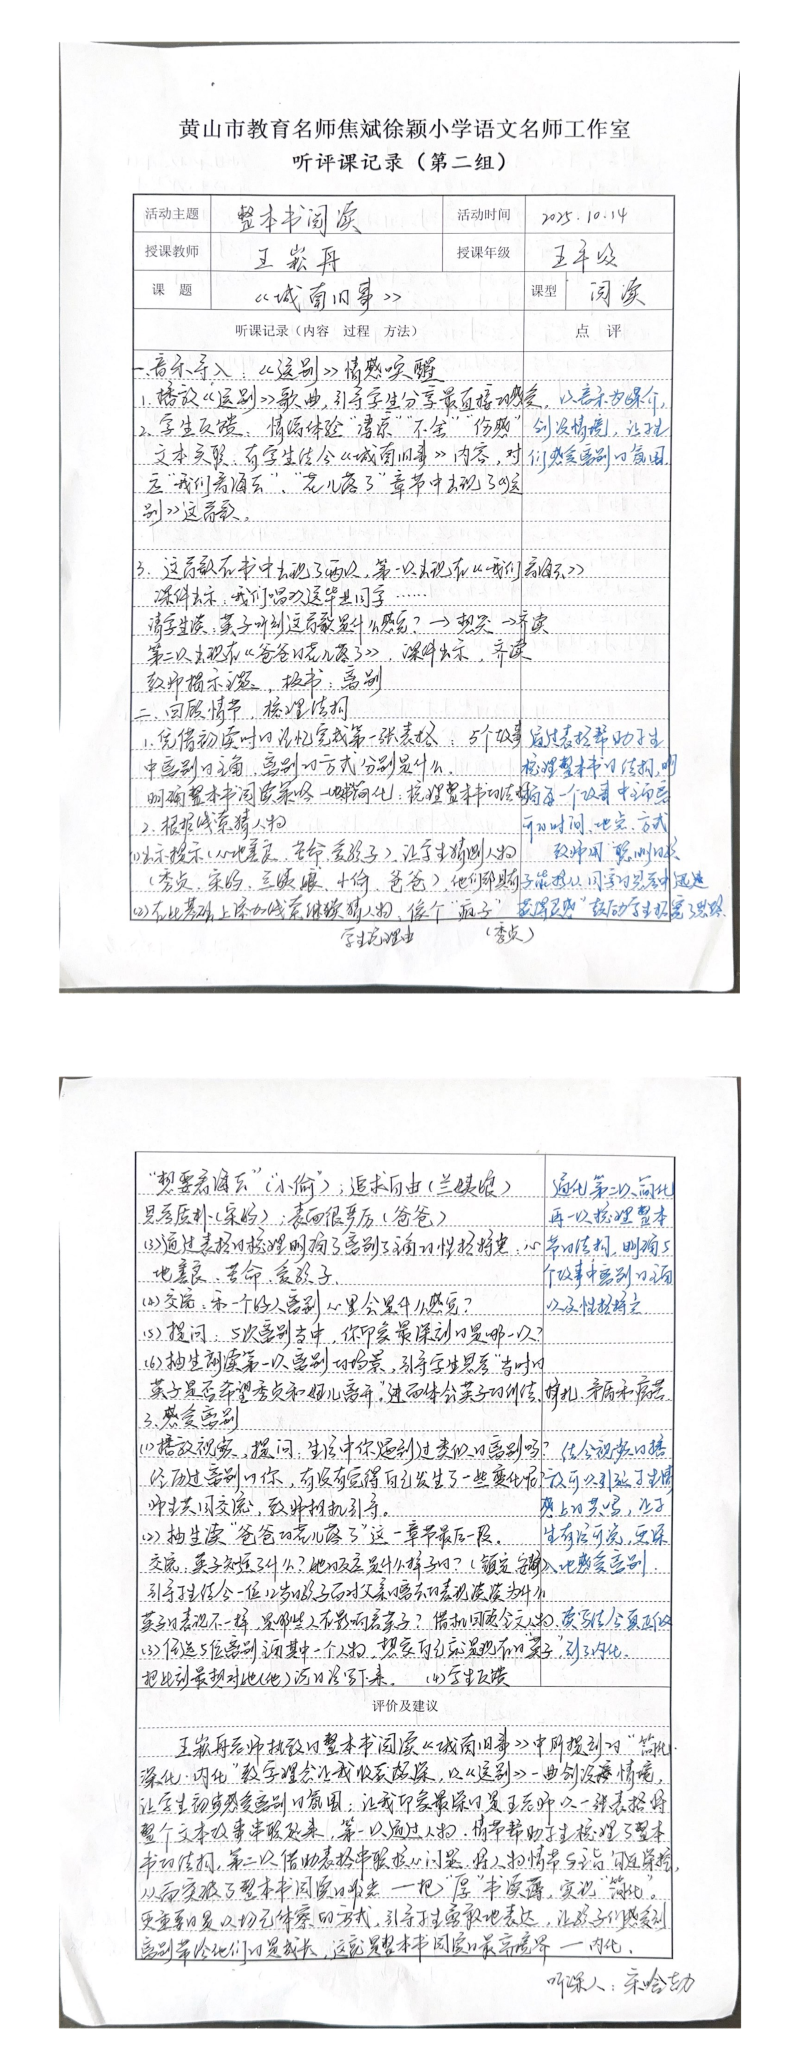 黄山市教育名师焦斌徐颖小学语文名师工作室
听评课记录（第二组）
活动主题 整本书阅读 活动时间 2025.10.14
授课教师 王崧丹 授课年级 五年级
课 题 《城南旧事》 课型 阅读
听课记录（内容 过程 方法） 点 评
一.音乐导入：《送别》情感唤醒
1.播放《送别》歌曲，引导学生分享最直接的感受， 以音乐为媒介，
2.学生反馈：情绪体验"凄凉""不舍""伤感" 创设情境，让学生
文本关联：有学生结合《城南旧事》内容，对 们感受离别的氛围
应"我们看海去"、"花儿落了"章节中出现了《送
别》这首歌。
3.这首歌在书中出现了两次，第一次出现在《我们看海去》
课件出示：我们唱欢送毕业同学……
请学生读，英子听到这首歌是什么感觉？→想哭→齐读
第二次出现在《爸爸的花儿落了》，课件出示，齐读
教师揭示主题，板书：离别
二.回顾情节，梳理结构
1.凭借初读时的记忆完成第一张表格：5个故事 通过表格帮助学生
中离别的主角、离别的方式分别是什么。 梳理整本书的结构，明
明确整本书阅读策略—简化：梳理整本书的结构 确每一个故事中主角离
2.根据线索猜人物 开的时间、地点、方式
(1)出示提示(心地善良、苦命、爱孩子)，让学生猜测人物 教师用"聪明的孩
(秀贞、宋妈、兰姨娘、小偷、爸爸)，他们都具有 子能够从同学的思考中迅速
(2)在此基础上添加线索继续猜人物，像个"疯子" 获得灵感"鼓励学生拓宽了思路.
学生说理由 （秀贞）
"想要看海去"("小偷")；追求自由(兰姨娘) 通过第二次简化
思考质朴(宋妈)；表面很严厉(爸爸) 再一次梳理整本
(3)通过表格的梳理明确了离别主角的性格特点：心 书的结构，明确5
地善良、苦命、爱孩子. 个故事中离别的主角
(4)交流：和一个好人离别心里会是什么感觉？ 以及性格特点
(5)提问：5次离别当中，你印象最深刻的是哪一次？
(6)抽生朗读第一次离别的场景，引导学生思考"当时的
英子是否希望秀贞和妞儿离开"进而体会英子的纠结、挣扎、矛盾和痛苦.
3.感受离别
(1)播放视频，提问：生活中你遇到过类似的离别吗？ 结合视频的播
经历过离别的你，有没有觉得自己发生了一些变化呢？ 放可以引发学生情
师生共同交流，教师相机引导。 感上的共鸣，让学
(2)抽生读"爸爸的花儿落了"这一章节最后一段。 生有话可说，更深
交流：英子知道了什么？她的反应是什么样子的？(镇定、安静) 入地感受离别.
引导学生结合一位12岁的孩子面对父亲的离去的表现谈谈为什么
英子的表现不一样，是哪些人在影响着英子？借机回顾全文人物. 读写结合真正做
(3)任选5位离别主角其中一个人物，想象自己就是现在的"英子"， 到了内化.
把此刻最想对他(她)说的话写下来. (4)学生反馈
评价及建议
王崧丹老师执教的整本书阅读《城南旧事》中所提到的"简化·
深化·内化"教学理念让我收获颇深，以《送别》一曲创设情境，
让学生初步感受离别的氛围；让我印象最深的是王老师以一张表格将
整个文本故事串联起来，第一次通过人物、情节帮助学生梳理了整本
书的结构，第二次借助表格串联核心问题，将人物情节与主旨
从而突破了整本书阅读的难点—把"厚"书读薄，实现"简化"。
更重要的是以切己体察的方式，引导学生勇敢地表达，让孩子们感受到
离别带给他们的是成长，这就是整本书阅读的最高境界—内化.
听课人：